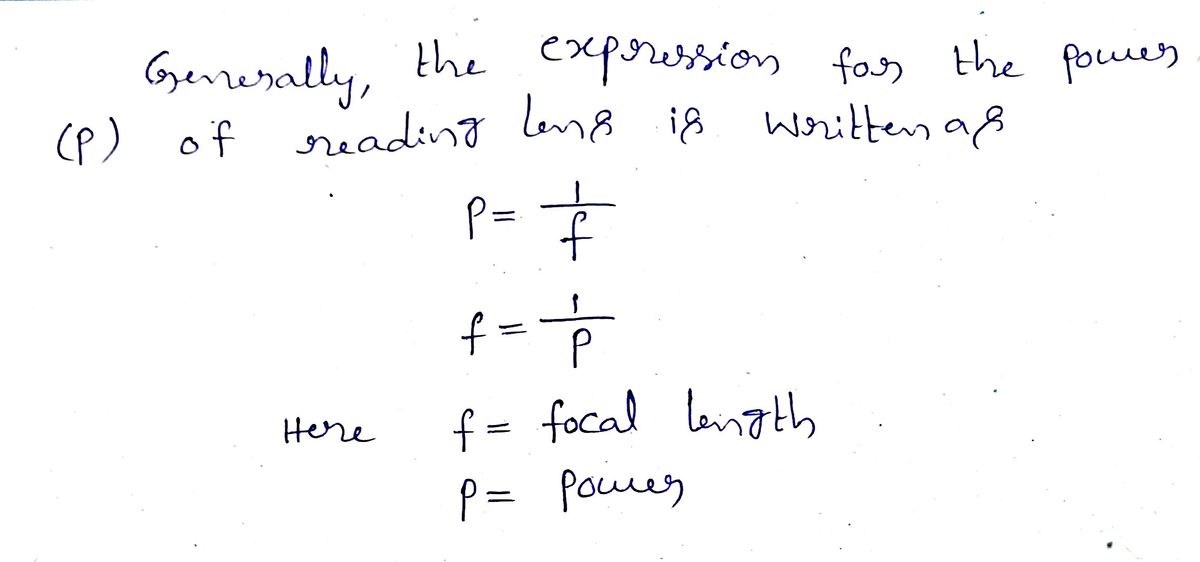 Generally, the expression for the power
(P) of reading lens is written as
P = 1/f
f = 1/P
Here f = focal length
P = Power